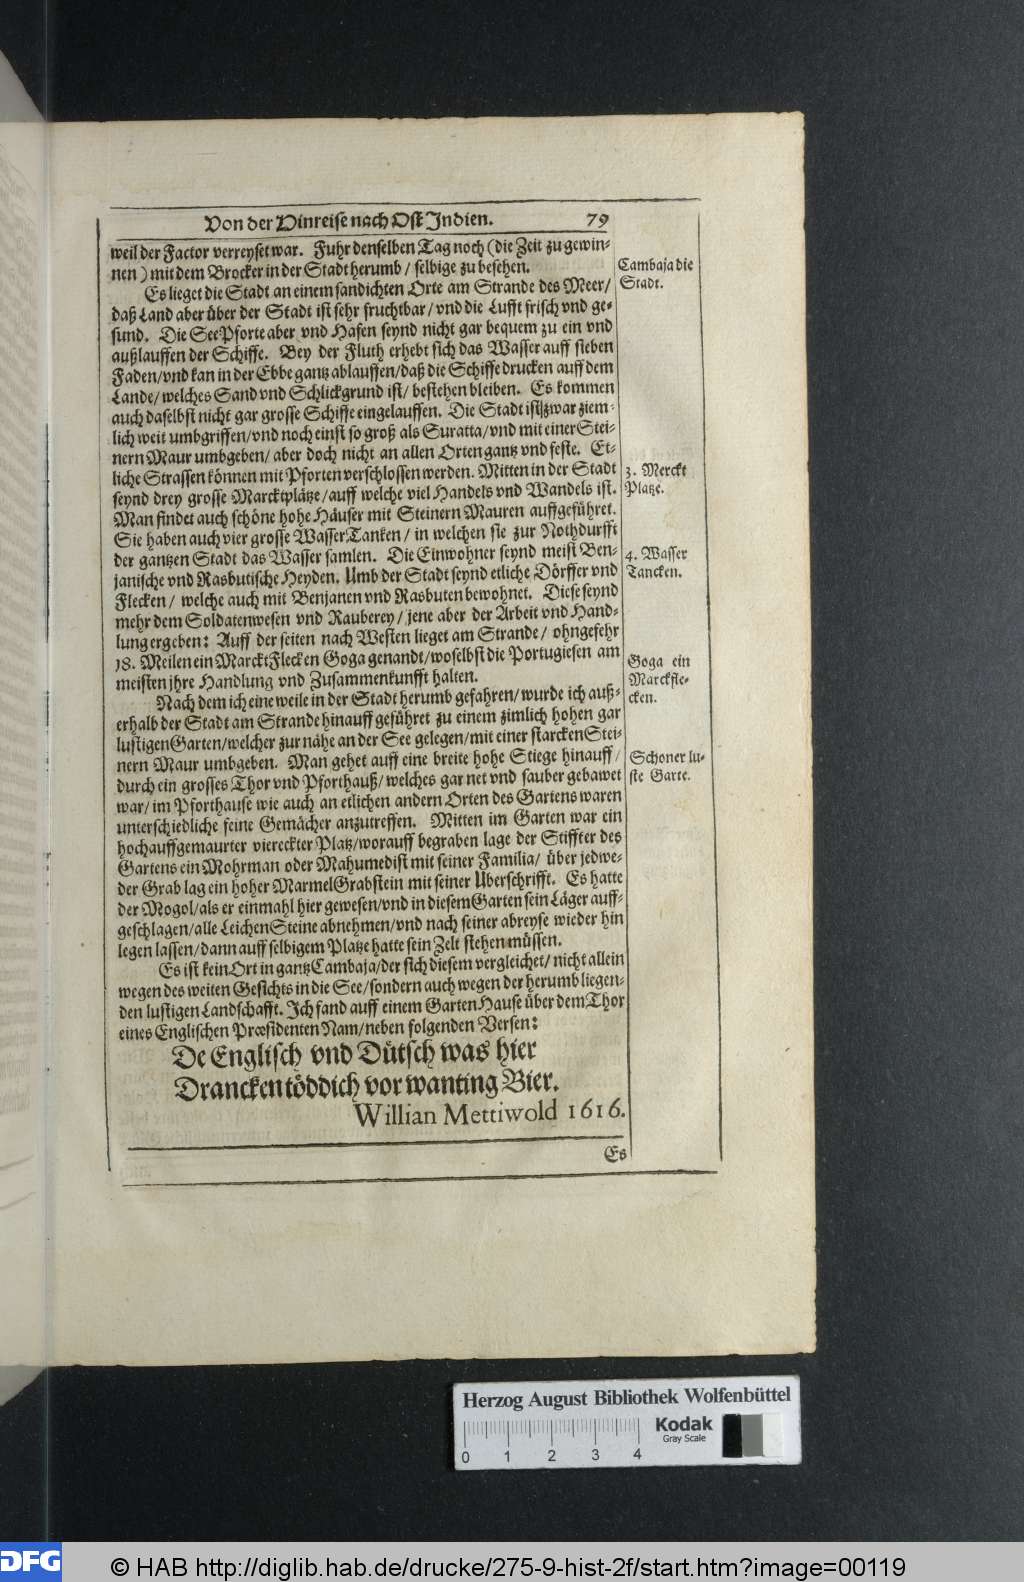 Von der Hinreise nach Ost Indien. 79
weil der Factor verreyset war. Fuhr denselben Tag noch (die Zeit zu gewin-
nen) mit dem Brocker in der Stadt herumb / selbige zu besehen.
Cambaja die
Stadt.
Es lieget die Stadt an einem sandichten Orte am Strande des Meer/
daß Land aber über der Stadt ist sehr fruchtbar / vnd die Lufft frisch vnd ge-
sund. Die SeePforte aber vnd Hafen seynd nicht gar bequem zu ein vnd
außlauffen der Schiffe. Bey der Fluth erhebt sich das Wasser auff sieben
Faden/vnd kan in der Ebbe gantz ablauffen/daß die Schiffe drucken auff dem
Lande/ welches Sand vnd Schlickgrund ist/ bestehen bleiben. Es kommen
auch daselbst nicht gar grosse Schiffe eingelauffen. Die Stadt ist zwar ziem-
lich weit umbgriffen/vnd noch einst so groß als Suratta/vnd mit einer Stei-
nern Maur umbgeben/ aber doch nicht an allen Orten gantz vnd feste. Et-
liche Strassen können mit Pforten verschlossen werden. Mitten in der Stadt
seynd drey grosse Marcktplätze/auff welche viel Handels vnd Wandels ist.
3. Merckt
Platze.
Man findet auch schöne hohe Häuser mit Steinern Mauren auffgeführet.
Sie haben auch vier grosse WasserTanken / in welchen sie zur Nothdurfft
der gantzen Stadt das Wasser samlen. Die Einwohner seynd meist Ben-
janische vnd Rasbutische Heyden. Umb der Stadt seynd etliche Dörffer vnd
4. Wasser
Tancken.
Flecken / welche auch mit Benjanen vnd Rasbuten bewohnet. Diese seynd
mehr dem Soldatenwesen vnd Rauberey / jene aber der Arbeit vnd Hand-
lung ergeben: Auff der seiten nach Westen lieget am Strande / ohngefehr
18. Meilen ein MarcktFlecken Goga genandt/woselbst die Portugiesen am
meisten jhre Handlung vnd Zusammenkunfft halten.
Goga ein
Marckfle-
cken.
Nach dem ich eine weile in der Stadt herumb gefahren/wurde ich auß-
erhalb der Stadt am Strande hinauff geführet zu einem zimlich hohen gar
lustigen Garten/welcher zur nähe an der See gelegen/mit einer starcken Stei-
nern Maur umbgeben. Man gehet auff eine breite hohe Stiege hinauff/
durch ein grosses Thor vnd Pforthauß/welches gar net vnd sauber gebawet
Schoner lu-
ste Garte.
war/ im Pforthause wie auch an etlichen andern Orten des Gartens waren
unterschiedliche feine Gemächer anzutreffen. Mitten im Garten war ein
hochauffgemaurter viereckter Platz/worauff begraben lage der Stiffter des
Gartens ein Mohrman oder Mahumedist mit seiner Familia/ über jedwe-
der Grab lag ein hoher MarmelGrabstein mit seiner Uberschrifft. Es hatte
der Mogol/als er einmahl hier gewesen/vnd in diesem Garten sein Läger auff-
geschlagen/alle LeichenSteine abnehmen/vnd nach seiner abreyse wieder hin
legen lassen/dann auff selbigem Platze hatte sein Zelt stehen müssen.
Es ist kein Ort in gantz Cambaja/der sich diesem vergleichet/ nicht allein
wegen des weiten Gesichts in die See/sondern auch wegen der herumb liegen-
den lustigen Landschafft. Ich fand auff einem Garten Hause über dem Thor
eines Englischen Præsidenten Nam/neben folgenden Versen:
De Englisch vnd Dütsch was hier
Drancken töddich vor wanting Bier.
Willian Mettiwold 1616.
Es
Herzog August Bibliothek Wolfenbüttel
Kodak
Gray Scale
0 1 2 3 4
DFG
© HAB http://diglib.hab.de/drucke/275-9-hist-2f/start.htm?image=00119